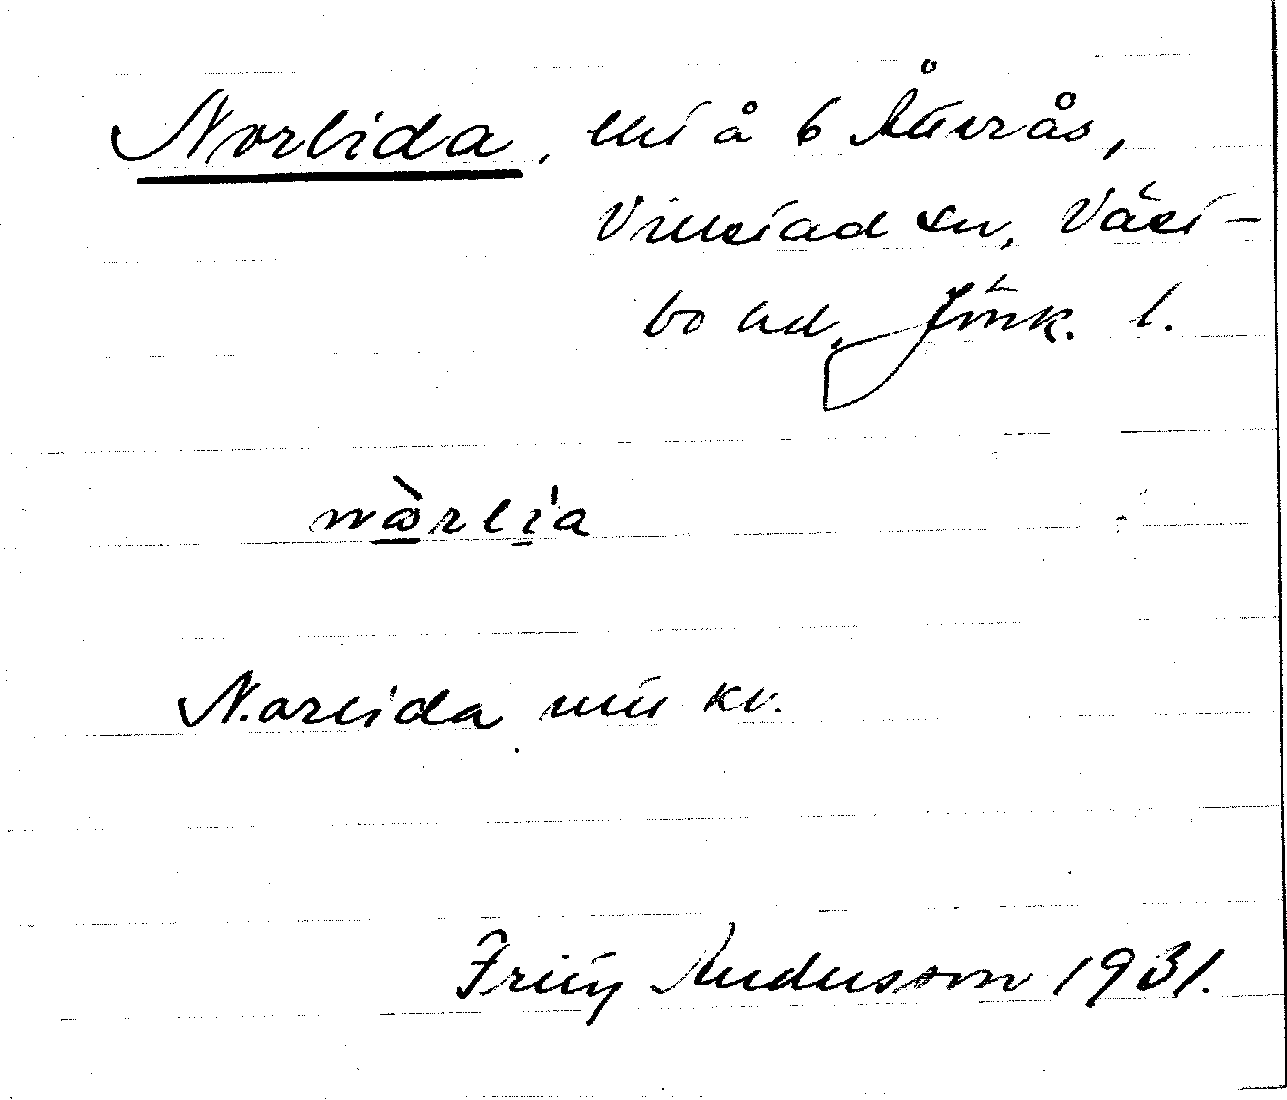 Norlida, lht å 6 Åtterås,
Villstad sn, Väst-
bo hd, Jönk. l.
nòrlía
Norlida utU kv.
Fritz Andersson 1931.